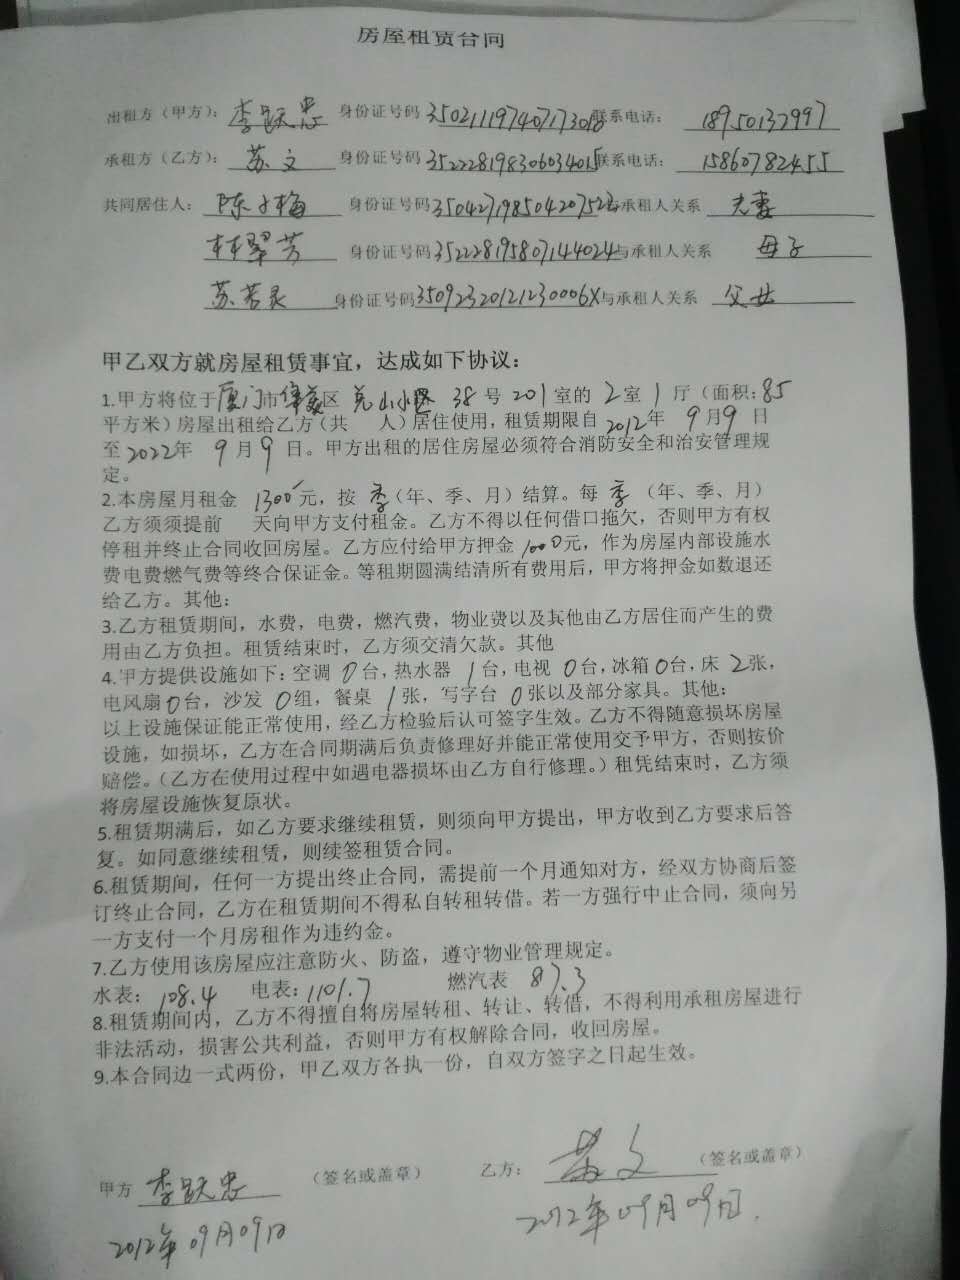 房屋租赁合同
出租方（甲方）：李跃忠 身份证号码350211197407173018联系电话：18950132997
承租方（乙方）：苏文 身份证号码352228198306034015联系电话：15860782455
共同居住人：陈小梅 身份证号码35042719850420752 与承租人关系 夫妻
林翠芳 身份证号码352228195807144024与承租人关系 母子
苏若灵 身份证号码35092320121230006X与承租人关系 父女
甲乙双方就房屋租赁事宜，达成如下协议：
1.甲方将位于厦门市集美区 兑山小区 38 号 201 室的 2 室 1 厅（面积：85
平方米）房屋出租给乙方（共 人）居住使用，租赁期限自 2012年 9月9日
至2022年 9月9日。甲方出租的居住房屋必须符合消防安全和治安管理规
定。
2.本房屋月租金 1300元，按 季（年、季、月）结算。每 季（年、季、月）
乙方须须提前 天向甲方支付租金。乙方不得以任何借口拖欠，否则甲方有权
停租并终止合同收回房屋。乙方应付给甲方押金1000元，作为房屋内部设施水
费电费燃气费等终合保证金。等租期圆满结清所有费用后，甲方将押金如数退还
给乙方。其他：
3.乙方租赁期间，水费，电费，燃汽费，物业费以及其他由乙方居住而产生的费
用由乙方负担。租赁结束时，乙方须交清欠款。其他
4.甲方提供设施如下：空调 0台，热水器 1台，电视 0台，冰箱0台，床 2张，
电风扇0台，沙发 0组，餐桌 1张，写字台 0张以及部分家具。其他：
以上设施保证能正常使用，经乙方检验后认可签字生效。乙方不得随意损坏房屋
设施，如损坏，乙方在合同期满后负责修理好并能正常使用交予甲方，否则按价
赔偿。（乙方在使用过程中如遇电器损坏由乙方自行修理。）租凭结束时，乙方须
将房屋设施恢复原状。
5.租赁期满后，如乙方要求继续租赁，则须向甲方提出，甲方收到乙方要求后答
复。如同意继续租赁，则续签租赁合同。
6.租赁期间，任何一方提出终止合同，需提前一个月通知对方，经双方协商后签
订终止合同，乙方在租赁期间不得私自转租转借。若一方强行中止合同，须向另
一方支付一个月房租作为违约金。
7.乙方使用该房屋应注意防火、防盗，遵守物业管理规定。
水表：108.4 电表：1101.7 燃汽表 87.3
8.租赁期间内，乙方不得擅自将房屋转租、转让、转借，不得利用承租房屋进行
非法活动，损害公共利益，否则甲方有权解除合同，收回房屋。
9.本合同边一式两份，甲乙双方各执一份，自双方签字之日起生效。
甲方 李跃忠 （签名或盖章） 乙方：苏文 （签名或盖章）
2012年09月09日 2012年09月09日.